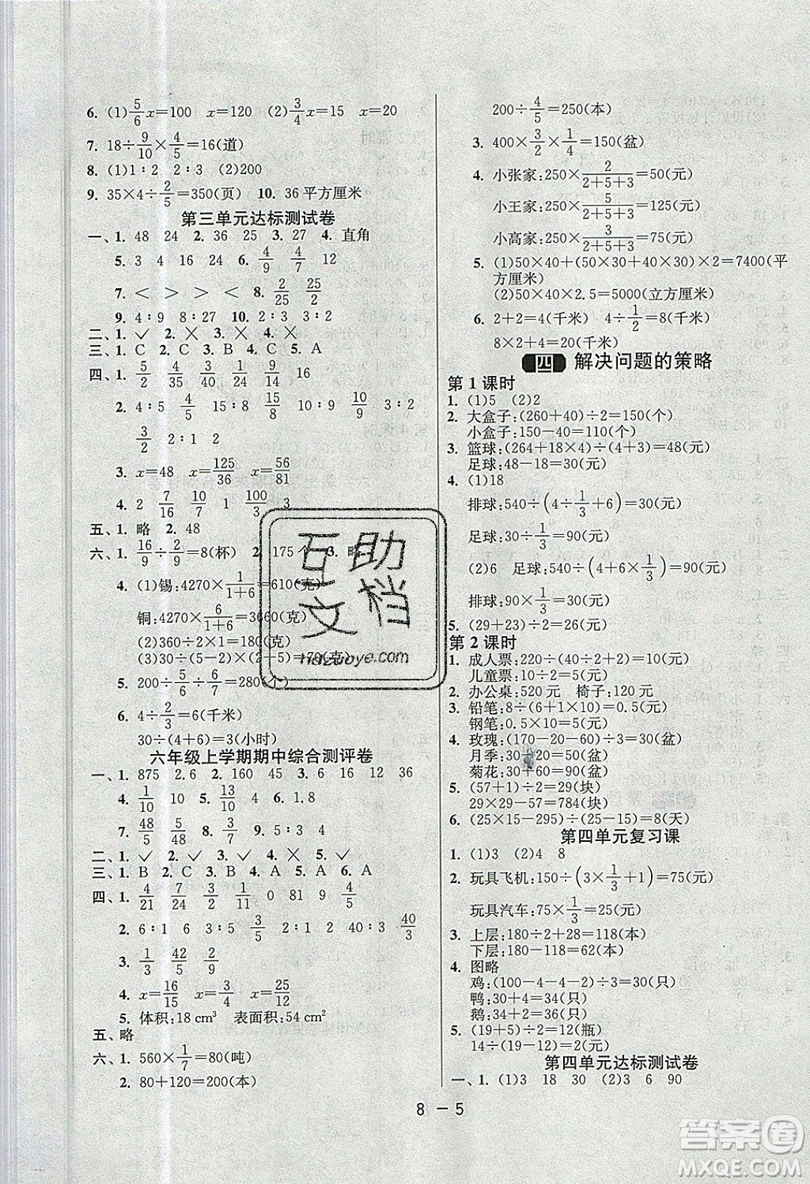 6. (1)5/6x=100 x=120 (2)3/4x=15 x=20
7. 18÷9/10×4/5=16(道)
8. (1)1∶2 2∶3 (2)200
9. 35×4÷2/5=350(页) 10. 36平方厘米
第三单元达标测试卷
一、1. 48 24 2. 36 25 3. 27 4. 直角
5. 3 4 16 12 6. 4/9 4/7 12
7. < > > < 8. 2/25 2/25
9. 40∶9 8∶9 10. 2∶3 3∶2
二、1. ✓ 2. × 3. × 4. ×
三、1. C 2. C 3. B 4. C 5. A
四、1. 5/2 4/35 31/40 4/21 16
2. 4∶3 4/3 15∶8 15/8 10∶9 10/9 3∶2
3/2 2∶1 2
3. x=48 x=125/36 x=56/81
4. 2 7/16 9/10 1 100/3 3
五、1. 略 2. 48
六、1. 16/9÷2/9=8(杯) 2. 175个 3. 略
4. (1)锡:4270×1/(1+6)=610(克)
铜:4270×6/(1+6)=3660(克)
(2)360÷2=180(克)
5. 200÷5/6÷6/7=280(个)
6. 4÷2/3=6(千米)
30÷(4+6)=3(小时)
六年级上学期期中综合测评卷
一、1. 875 2.6 2. 160 45 3. 6 16 12 36
4. 1/10 4/5 5. 12 6. 1.8
7. 48/5 5/48 8. 2/3 9. 5∶3 4
二、1. ✓ 2. ✓ 3. ✓ 4. × 5. ✓
三、1. B 2. C 3. C 4. A 5. C
四、1. 4/21 7/24 2/3 1/11 0 81 9 4/5
2. 6 1∶3 1/3 4∶5 4/5 2∶1 2 40∶3 40/3
3. 1/3 42/5 2/9
4. x=16/15 x=3/4 x=25/12
5. 体积:18 cm³ 表面积:54 cm²
五、略
六、1. 560×1/7=80(吨)
2. 80+120=200(本)
200÷4/5=250(本)
3. 400×3/2×1/4=150(盆)
4. 小张家:250×2/(2+5+3)=50(元)
小王家:250×5/(2+5+3)=125(元)
小高家:250×3/(2+5+3)=75(元)
5. (1)50×40+(50×30+40×30)×2=7400(平
方厘米)
(2)50×40×2.5=5000(立方厘米)
6. 2+2=4(千米) 4÷1/2=8(千米)
8×2+4=20(千米)
四 解决问题的策略
第1课时
1. (1)5 (2)2
2. 大盒子:(260+40)÷2=150(个)
小盒子:150-40=110(个)
3. 篮球:(264+18×4)÷(4+3)=48(元)
足球:48-18=30(元)
4. (1)18
排球:540÷(4÷1/3+6)=30(元)
足球:30÷1/3=90(元)
(2)6 足球:540÷(4+6×1/3)=90(元)
排球:90×1/3=30(元)
5. (29+23)÷2=26(元)
第2课时
1. 成人票:220÷(40÷2+2)=10(元)
儿童票:10÷2=5(元)
2. 办公桌:520元 椅子:120元
3. 铅笔:8÷(6+1×10)=0.5(元)
钢笔:0.5×10=5(元)
4. 玫瑰:(170-20-60)÷3=30(盆)
月季:30+20=50(盆)
菊花:30+60=90(盆)
5. (57+1)÷2=29(块)
29×29-57=784(块)
6. (25×15-295)÷(25-15)=8(天)
第四单元复习课
1. (1)3 (2)4 8
2. 玩具飞机:150÷(3×1/3+1)=75(元)
玩具汽车:75×1/3=25(元)
3. 上层:180÷2+28=118(本)
下层:180-118=62(本)
4. 图略
鸡:(100-4-4-2)÷3=30(只)
鸭:30+4=34(只)
鹅:30+4+2=36(只)
5. (19+5)÷2=12(瓶)
14÷(19-12)=2(元)
第四单元达标测试卷
一、1. (1)3 18 30 (2)3 6 90
8 - 5
互助文档
Huzuoye.com
答案圈
MXQE.COM